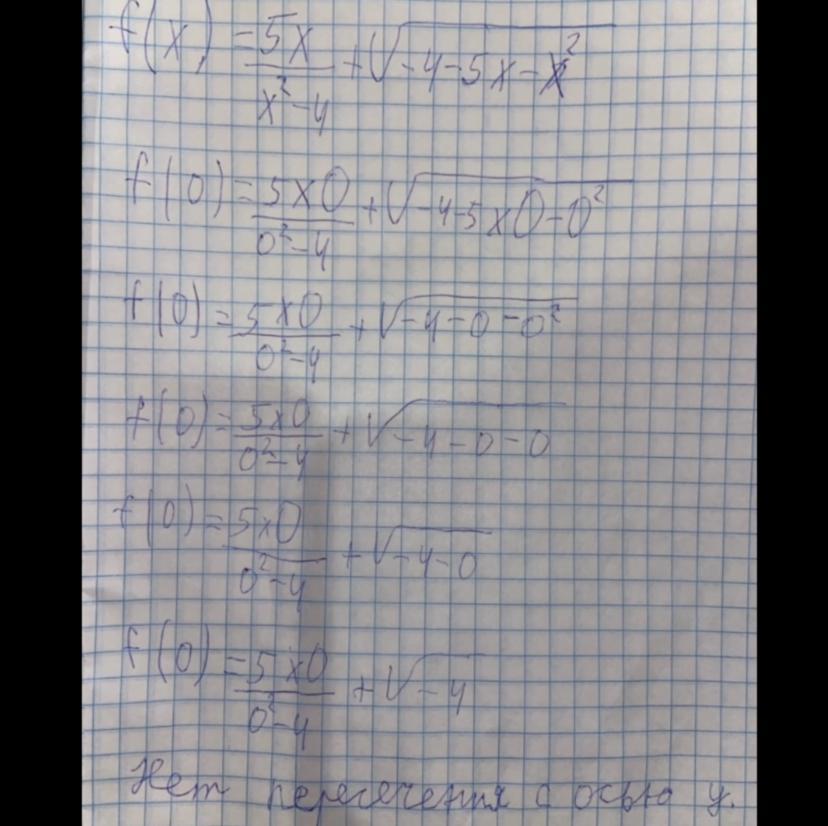 f(x) = 5x / (x² - 4) + √(-4 - 5x - x²)
f(0) = 5×0 / (0² - 4) + √(-4 - 5×0 - 0²)
f(0) = 5×0 / (0² - 4) + √(-4 - 0 - 0²)
f(0) = 5×0 / (0² - 4) + √(-4 - 0 - 0)
f(0) = 5×0 / (0² - 4) + √(-4 - 0)
f(0) = 5×0 / (0² - 4) + √(-4)
Нет пересечения с осью y.